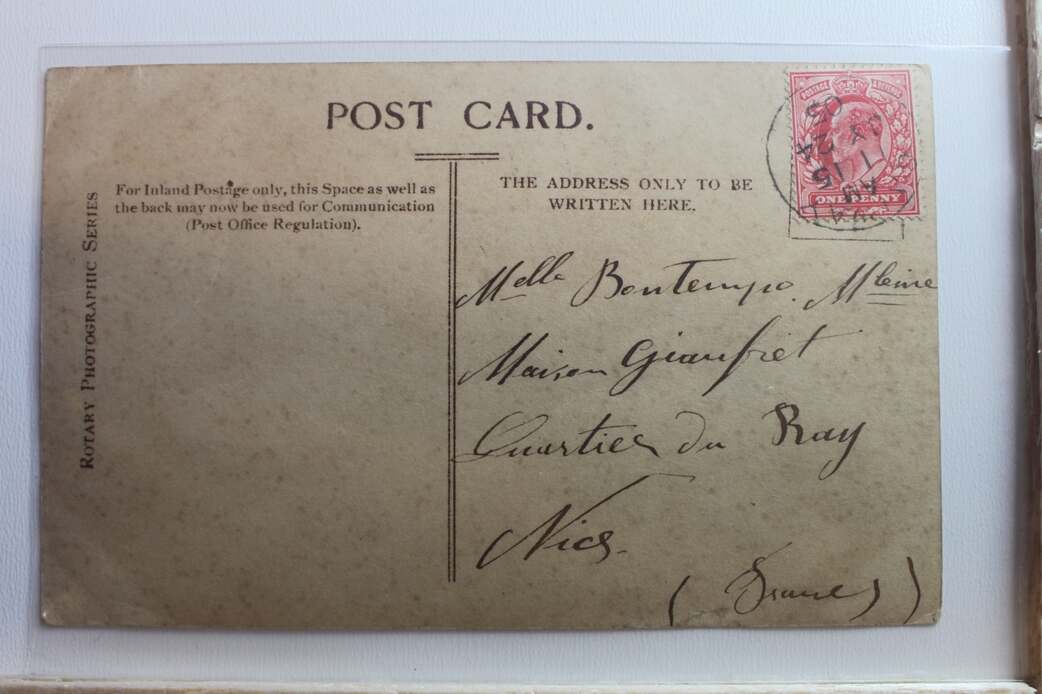 POST CARD.
For Inland Postage only, this Space as well as
the back may now be used for Communication
(Post Office Regulation).
THE ADDRESS ONLY TO BE
WRITTEN HERE.
ROTARY PHOTOGRAPHIC SERIES
POSTAGE REVENUE
ONE PENNY
5 15
AU 24
03
Melle Bontempo.
Maison Gianfret
Quartier du Ray
Nice.
(France)